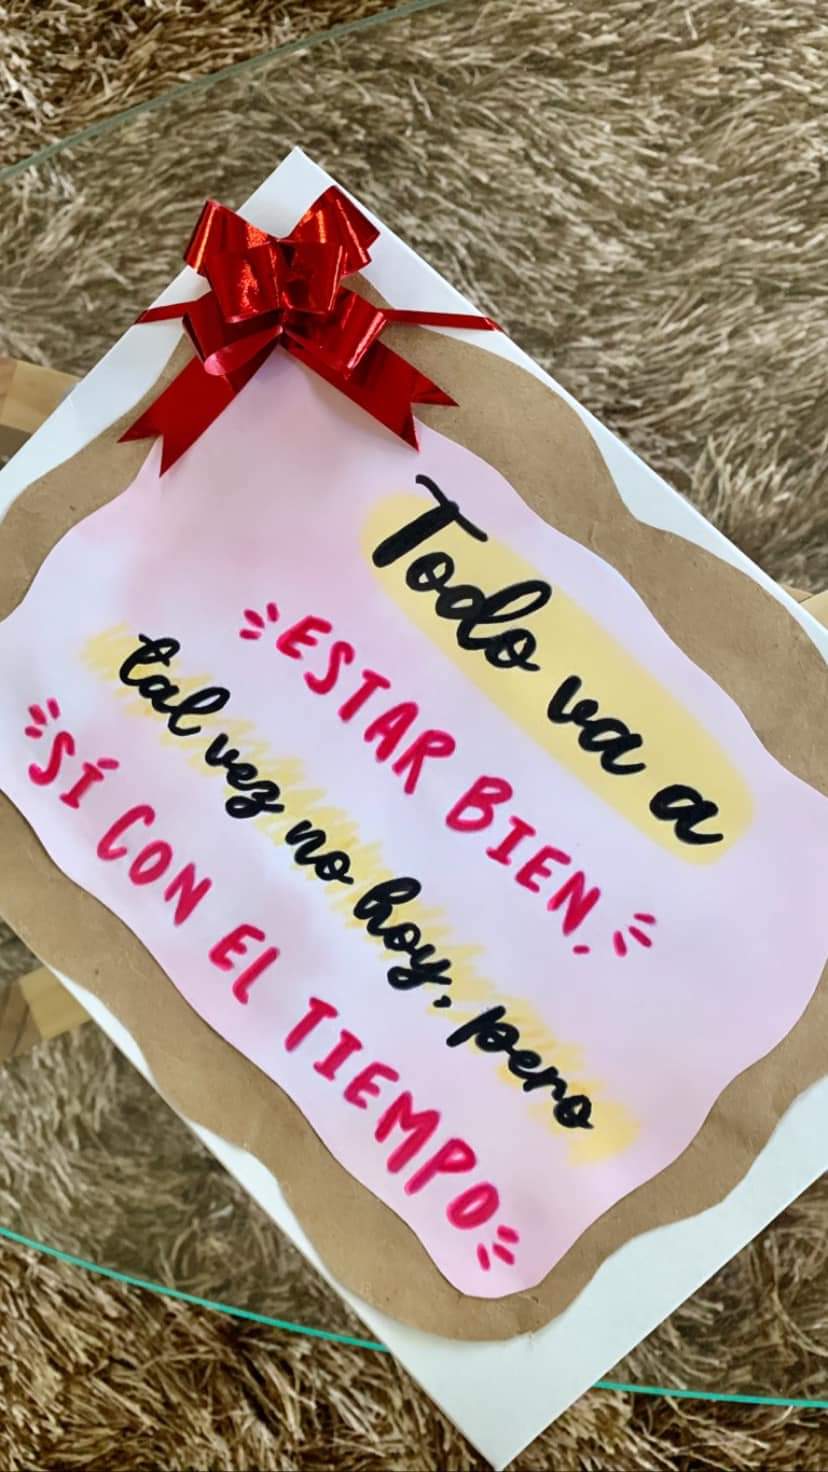 Todo va a
ESTAR BIEN,
tal vez no hoy, pero
SÍ CON EL TIEMPO